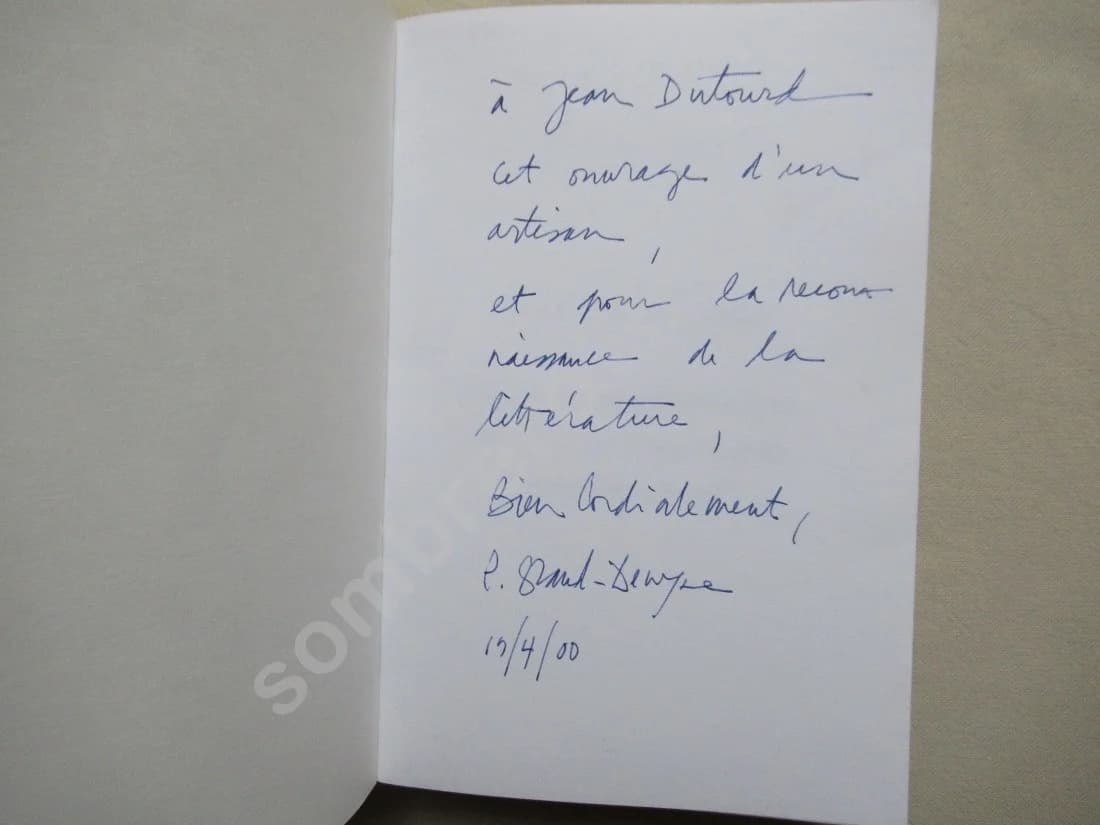 à Jean Dutourd
cet ouvrage d'un
artisan,
et pour la recon-
naissance de la
littérature,
Bien Cordialement,
P. Grand-Dewyse
/4/00
sombr